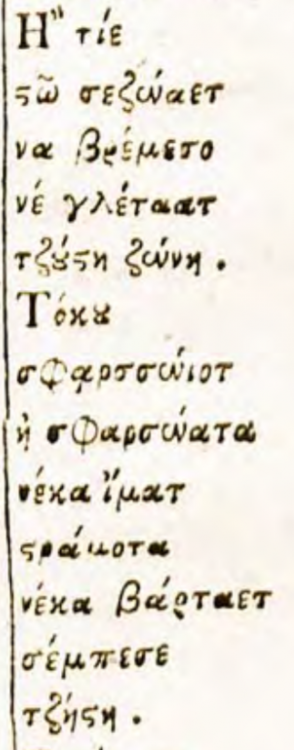 Ἢ τίε
ϛῶ σεζώαετ
να βρέμετο
νέ γλέταατ
τζȣ́ϛη ζώνη .
Τόκȣ
σφαρσσώιοτ
ἠ σφαρσώατα
νέκα ἴματ
ϛράμοτα
νέκα βάρταετ
σέμπεσε
τζήϛη .